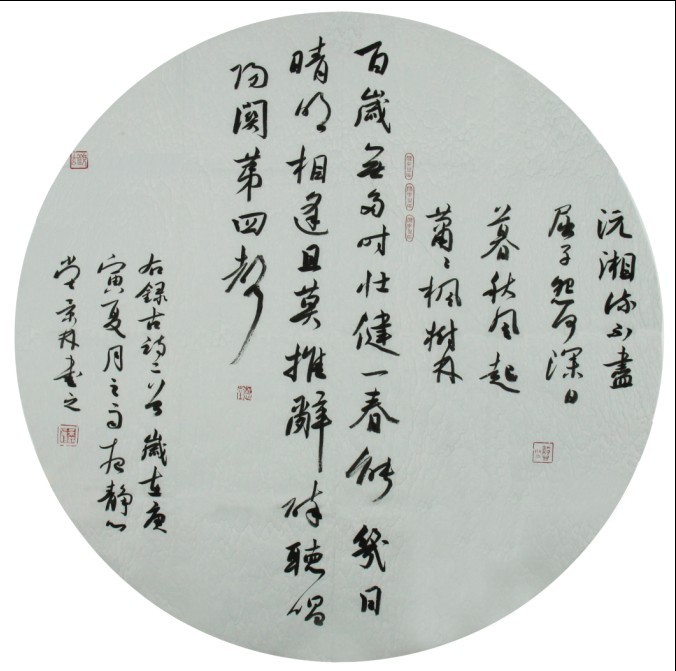 沅湘流不盡
屈子怨何深日
暮秋風起
蕭〻楓樹林
百歲無多時壯健一春能幾日
晴明相逢且莫推辭醉聽唱
陽關第四聲
右錄古詩二首歲在庚
寅夏月之於靜心
堂林書之